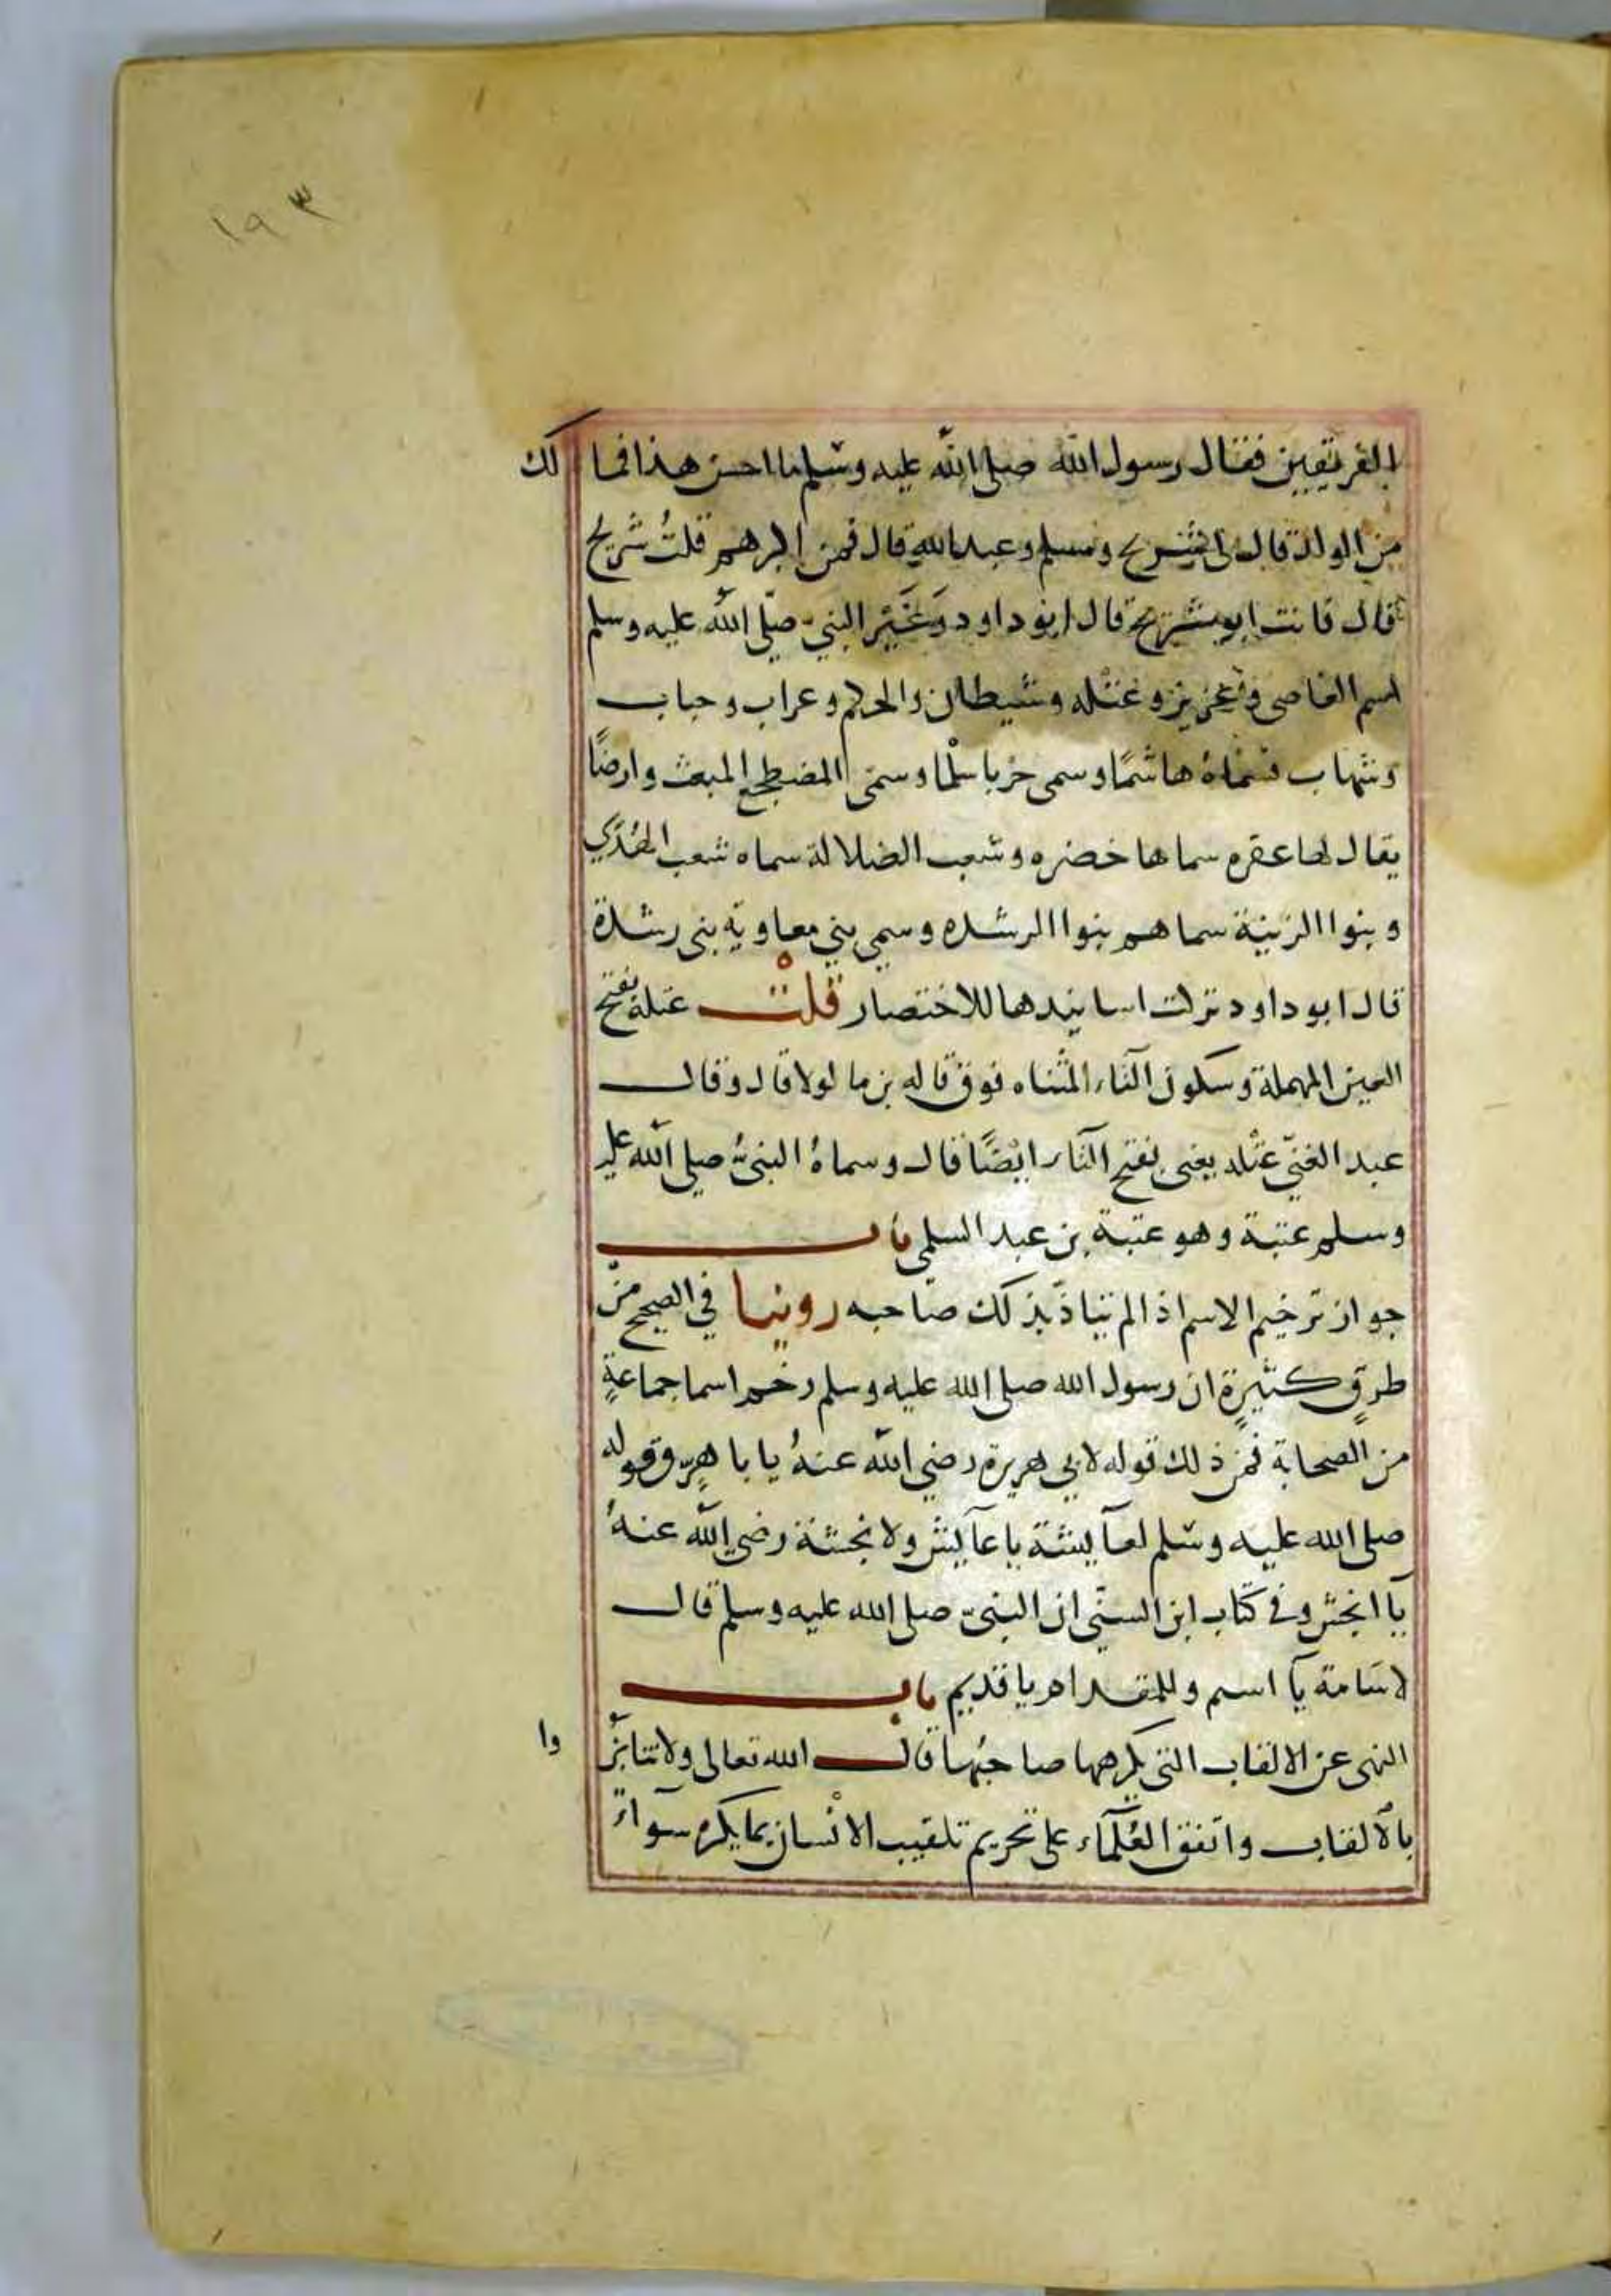 ١٩٣
الفريقين فقال رسول الله صلى الله عليه وسلم ما احسن هذا فما لك
من الولد قال لى شريح ومسلم وعبد الله قال فمن اكبرهم قلتُ شريح
قال فانت ابو شريح قال ابو داود وغَيَّر النبي صلّى الله عليه وسلم
اسم العاصى وعزيز وعتله وشيطان والحكم وغراب وحباب
وشهاب فسماهُ هاشمًا وسمى حربا سلْما وسمى المضطجع المنبعث وارضًا
يقال لها عقره سماها خضره وشعب الضلالة سماه شعب الهُدَي
وبنوا الزنية سماهم بنوا الرشده وسمي بني معاوية بنى رشدة
قال ابو داود تركت اسانيدها للاختصار قلتْ عتلة بفتح
العين المهملة وسكون التاء المثناه فوق قاله بن ماكولا قال وقال
عبد الغنيّ عتْله يعنى بفتح التاء ايضًا قال وسماهُ النبيُّ صلى الله عليه
وسلم عتبة وهو عتبة بن عبد السلمي باب
جواز ترخيم الاسم اذا لم يتاذّ بذلك صاحبه روينا في الصحيح منْ
طرقٍ كثيرةٍ ان رسول الله صلى الله عليه وسلم رخم اسما جماعةٍ
من الصحابة فمن ذلك قوله لابي هريرة رضي الله عنهُ يا با هِرّ وقوله
صلى الله عليه وسّلم لعآيشة يا عآيش ولانجشة رضي الله عنهُ
يا انجش وفي كتاب ابن السنّي ان النبيّ صلى الله عليه وسلم قال
لاسَامة يآ اسيم وللمقدام يا قديم باب
النهى عن الالقاب التي يكرهها صاحبُها قال الله تعالى ولا تنابزُوا
بالالقاب واتفق العُلمآء على تحريم تلقيب الانْسان بما يكره سوآءً